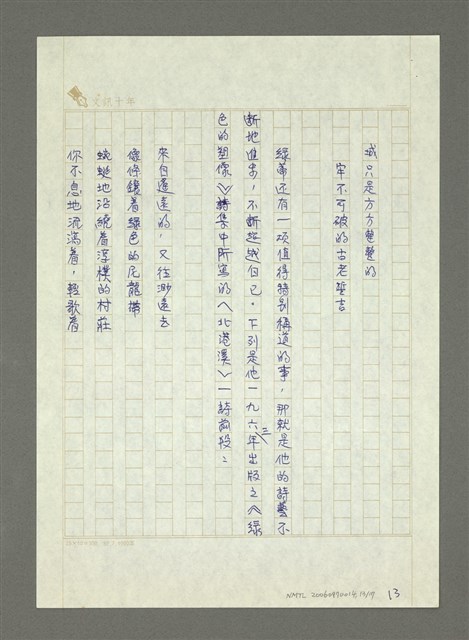 文訊十年
城只是方方整整的
牢不可破的古老誓言
綠蒂還有一項值得特別稱道的事，那就是他的詩藝不
斷地進步，不斷超越自己。下列是他一九六三年出版之《綠
色的塑像》詩集中所寫的〈北港溪〉一詩前段：
來自遙遠的，又往渺遠去
像條鑲着綠色的尼龍帶
蜿蜒地沿繞着淳樸的村莊
你不息地流淌着，輕歌着
13